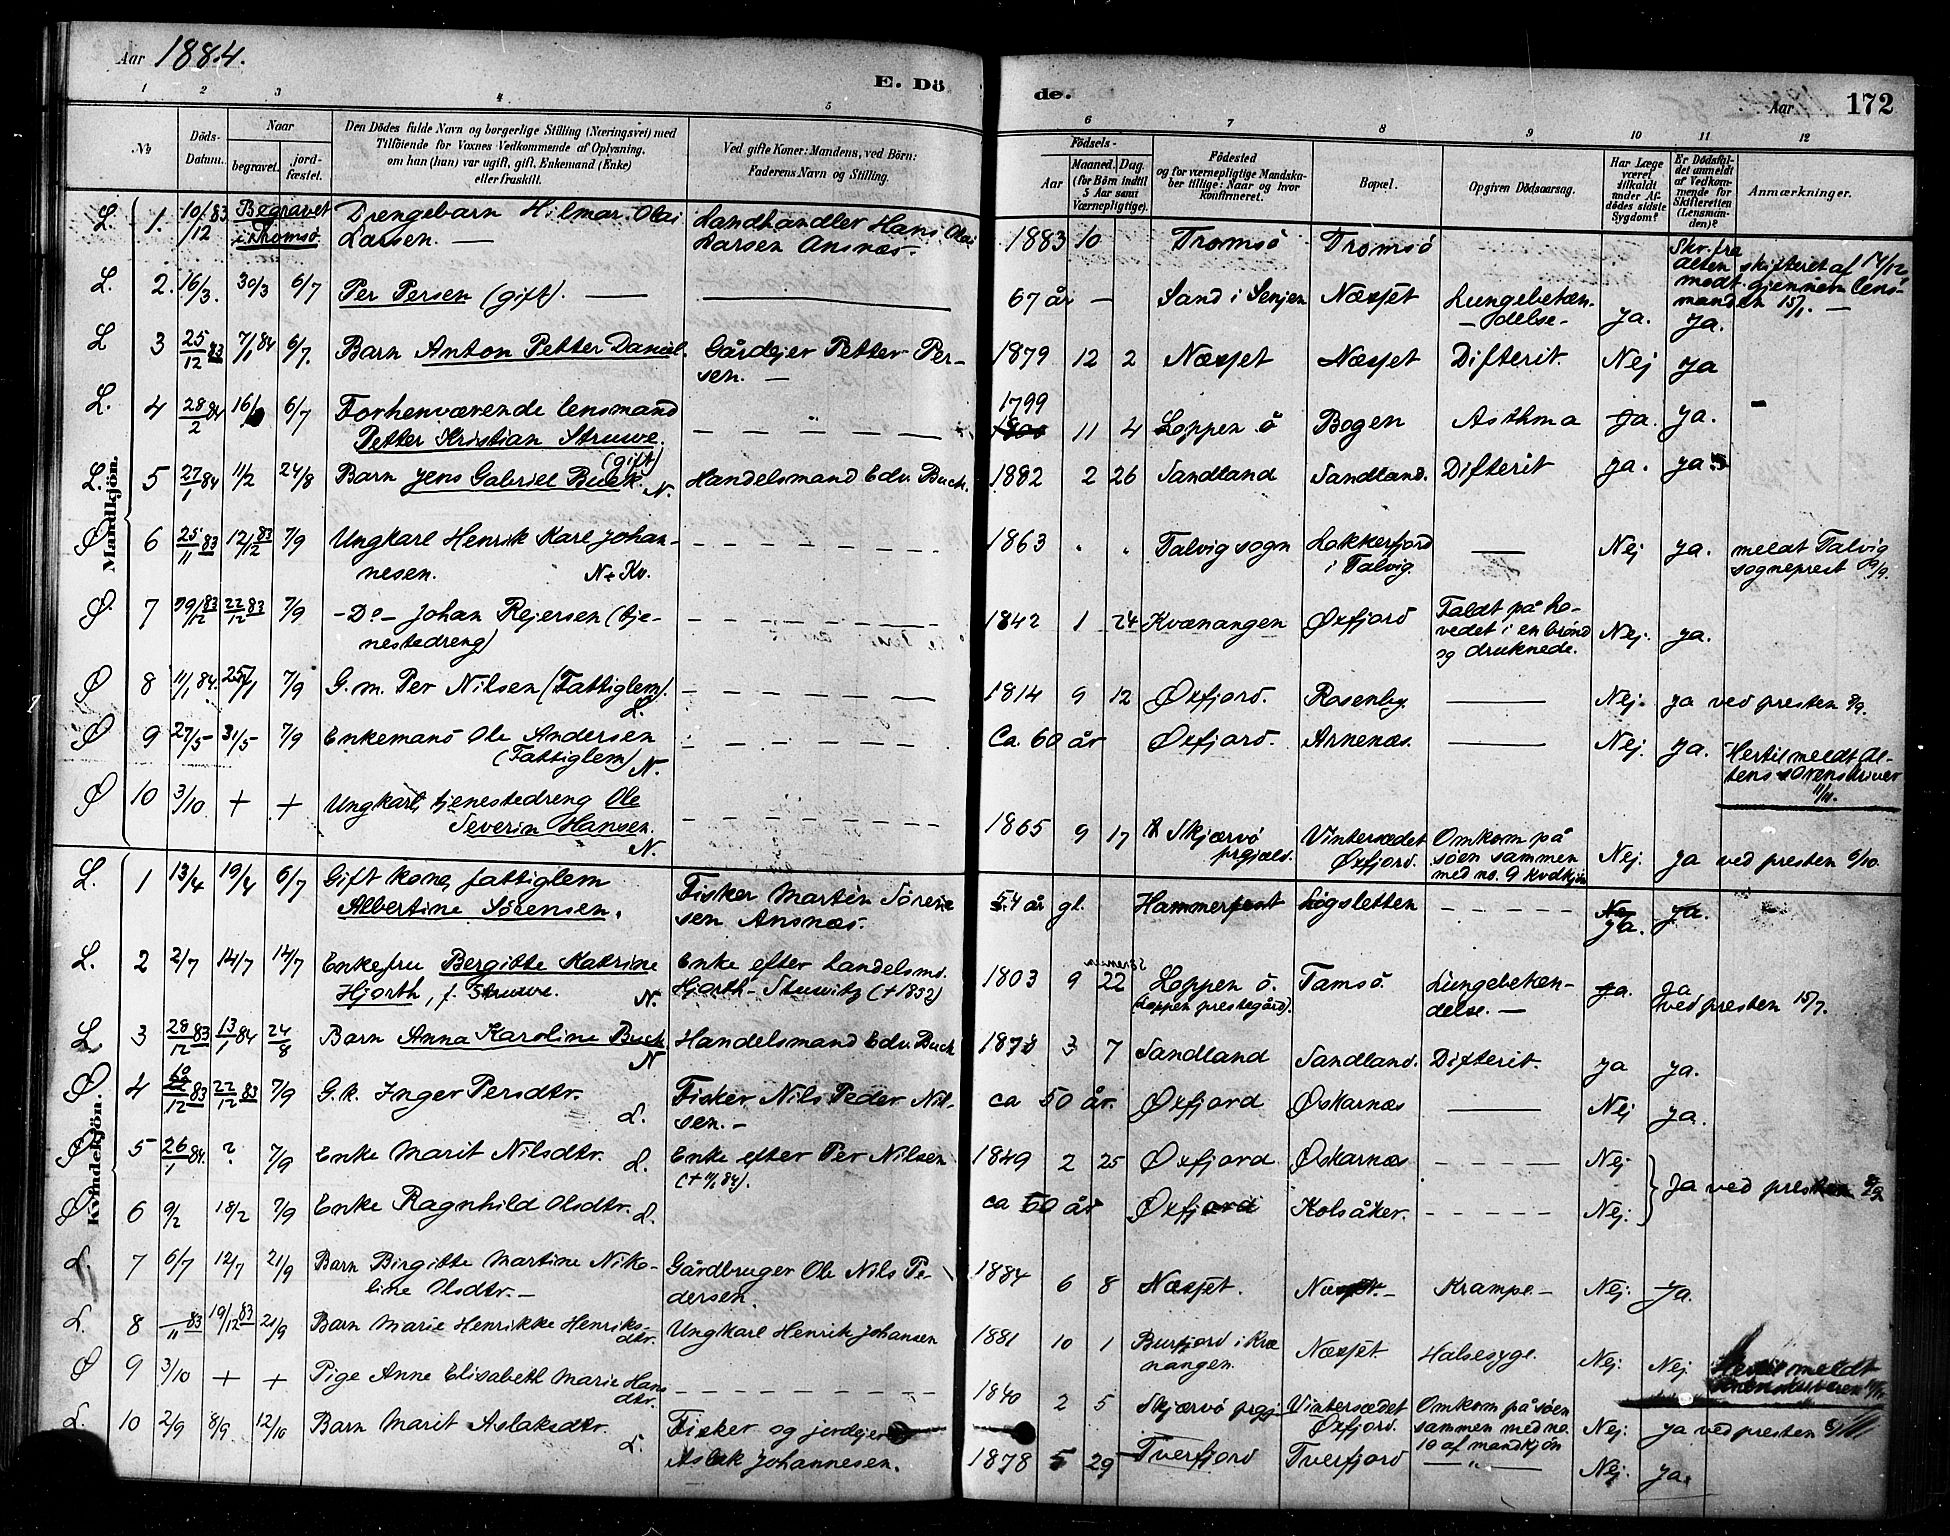 Aar 1884.
E. Dö
de.
Aar
172
1 2 3 4 5 6 7 8 9 10 11 12
No
Döds-
Datum.
Naar
begravet.
jord-
fæstet.
Den Dödes fulde Navn og borgerlige Stilling (Næringsvei) med
Tilföiende for Voxnes Vedkommende af Oplysning,
om han (hun) var ugift, gift, Enkemand (Enke)
eller fraskilt.
Ved gifte Koner: Mandens, ved Börn:
Faderens Navn og Stilling.
Födsels-
Aar
Maaned. Dag.
(for Börn indtil
5 Aar samt
Værnepligtige).
Födested
og for værnepligtige Mandska-
ber tillige: Naar og hvor
konfirmeret.
Bopæl.
Opgiven Dödsaarsag.
Har Læge
været
tilkaldt
under Af-
dödes sidste
Sygdom?
Er Dödsfal-
det anmeldt
af Vedkom-
mende for
Skifteretten
(Lensman-
den)?
Anmærkninger.
Mandkjön.
L. 1. 10/12 83 Begravet i Tromsö Drengebarn Hilmar Olai Landhandler Hans Olai 1883 10 Tromsö Tromsö Skr. fra
Larsen. — Larsen Ansnæs. Alten skifteret af 14/12
modt. gjennem lens-
manden 15/1. —
L. 2. 16/3. 30/3 6/7 Per Persen (gift). — 67 år — Sand i Senjen Næsjet Lungebetæn- ja. ja.
- delse -
L 3 25/12 83 7/1 84 6/7. Barn Anton Petter Daniel. Gårdejer Petter Per- 1879 12 2 Næsjet Næsjet Difterit. Nej ja
sen. —
L. 4 28/2 84 16/ 6/7 Forhenværende lensmand 1799 11 4 Loppen ö Bogen Asthma ja. ja.
Petter Kristian Struwe.
(gift)
L. 5 27/1 84 11/2 24/8 Barn Jens Gabriel Buck. N. Handelsmand Edv. Buck. 1882 2 26 Sandland Sandland. Difterit ja. ja.
Ø 6 25/11 83 12/12 83 7/9 Ungkarl Henrik Karl Johan- 1863 " " Talvig sogn Lokkerfjord — Nej ja. meldt Talvig
nesen. N + Kv. i Talvig. sogneprest 9/9.
Ø. 7 19/12 83 22/12 83 7/9 - Do - Johan Rejersen (tje- 1842 1 24 Kvænangen Øxfjord Faldt på ho- Nej. ja.
nestedreng) vedet i en brønd
og druknede.
Ø 8 11/1 84. 25/1 7/9 G. m. Per Nilsen (Fattiglem). L. 1814 9 12 Øxfjord. Rosenby. — Nej. ja ved presten 8/9.
Ø 9 27/5 31/5 7/9 Enkemand Ole Andersen Ca. 60 år Øxfjord. Arnenæs. — Nej. ja. Hertil meldt Al-
(Fattiglem) N. tens sorenskriver
11/11.
Ø 10 3/10 + + Ungkarl, tjenestedreng Ole 1865 9 17 Skjærvö Vintersædet Omkom på Nej. ja ved presten 6/10.
Severin Hansen. prgjæld. Øxfjord. søen sammen
N. med no. 9 kvdkjøn
Kvindekjön.
L. 1 13/4 19/4 6/7 Gift kone, fattiglem Fisker Martin Sören- 54 år gl. Hammerfest Lögsletten - - - - - Nej ja.
Albertine Sörensen. sen Ansnæs. ja.
L. 2 2/7 14/7 14/7 Enkefru Bergitte Katrine Enke efter handelsmd. 1803 9 22 Loppen ö. Tamsö. Lungebetæn- ja. ja
Hjorth, f. Struwe. N. Hjorth - Stuwitz (+ 1852) (Loppen prestegård). delse. — ved presten 15/7.
L. 3 28/12 83 13/1 84 24/8 Barn Anna Karoline Buck Handelsmand Edv. Buck 1878 3 7 Sandland Sandland. Difterit. ja ja.
N
Ø 4 12 83 22/12 83 7/9 G.k. Inger Persdtr. L. Fisker Nils Peder Nil- ca 50 år. Øxfjord Øskarnæs — Nej ja.
sen. -
Ø 5 26/1 84. ? 7/9 Enke Marit Nilsdtr. L. Enke efter Per Nilsen 1849 2 25 Øxfjord Øskarnæs - - - - - Nej
(+ 11/1 84).
Ø 6 9/2 18/2 7/9 Enke Ragnhild Olsdtr. L. ca 60 år Øxfjord Kolsåker. - - - - - Nej. ja ved presten 8/9
L. 7 6/7 12/7 21/9 Barn Birgitte Martine Niko- Gårdbruger Ole Nils Pe- 1884 6 8 Næsjet. Næsjet. - Krampe. - Nej. ja.
line Olsdtr. — dersen.
L. 8 —/11 83 19/12 83 21/9 Barn Marie Henrikke Henriks- Ungkarl Henrik Johansen 1881 10 1 Burfjord i Kvæ Næsjet. Halsesyge. Nej. Nej. Hertil meldt
dtr. nangen. sorenskriveren
Ø 9 3/10 + + Pige Anne Elisabeth Marie Hans 1840 2 5 Skjærvö prgj. Vintersædet Omkom på søen Nej. ja ved presten
dtr. Øxfjord. sammen med no.
10 af mandkjön
L. 10 2/9 8/9. 12/10 Barn Marit Aslaksdtr. L. Fisker og jordejer 1878 5 29 Tverfjord Tverfjord — " — Nej. ja.
Aslak Johannesen.